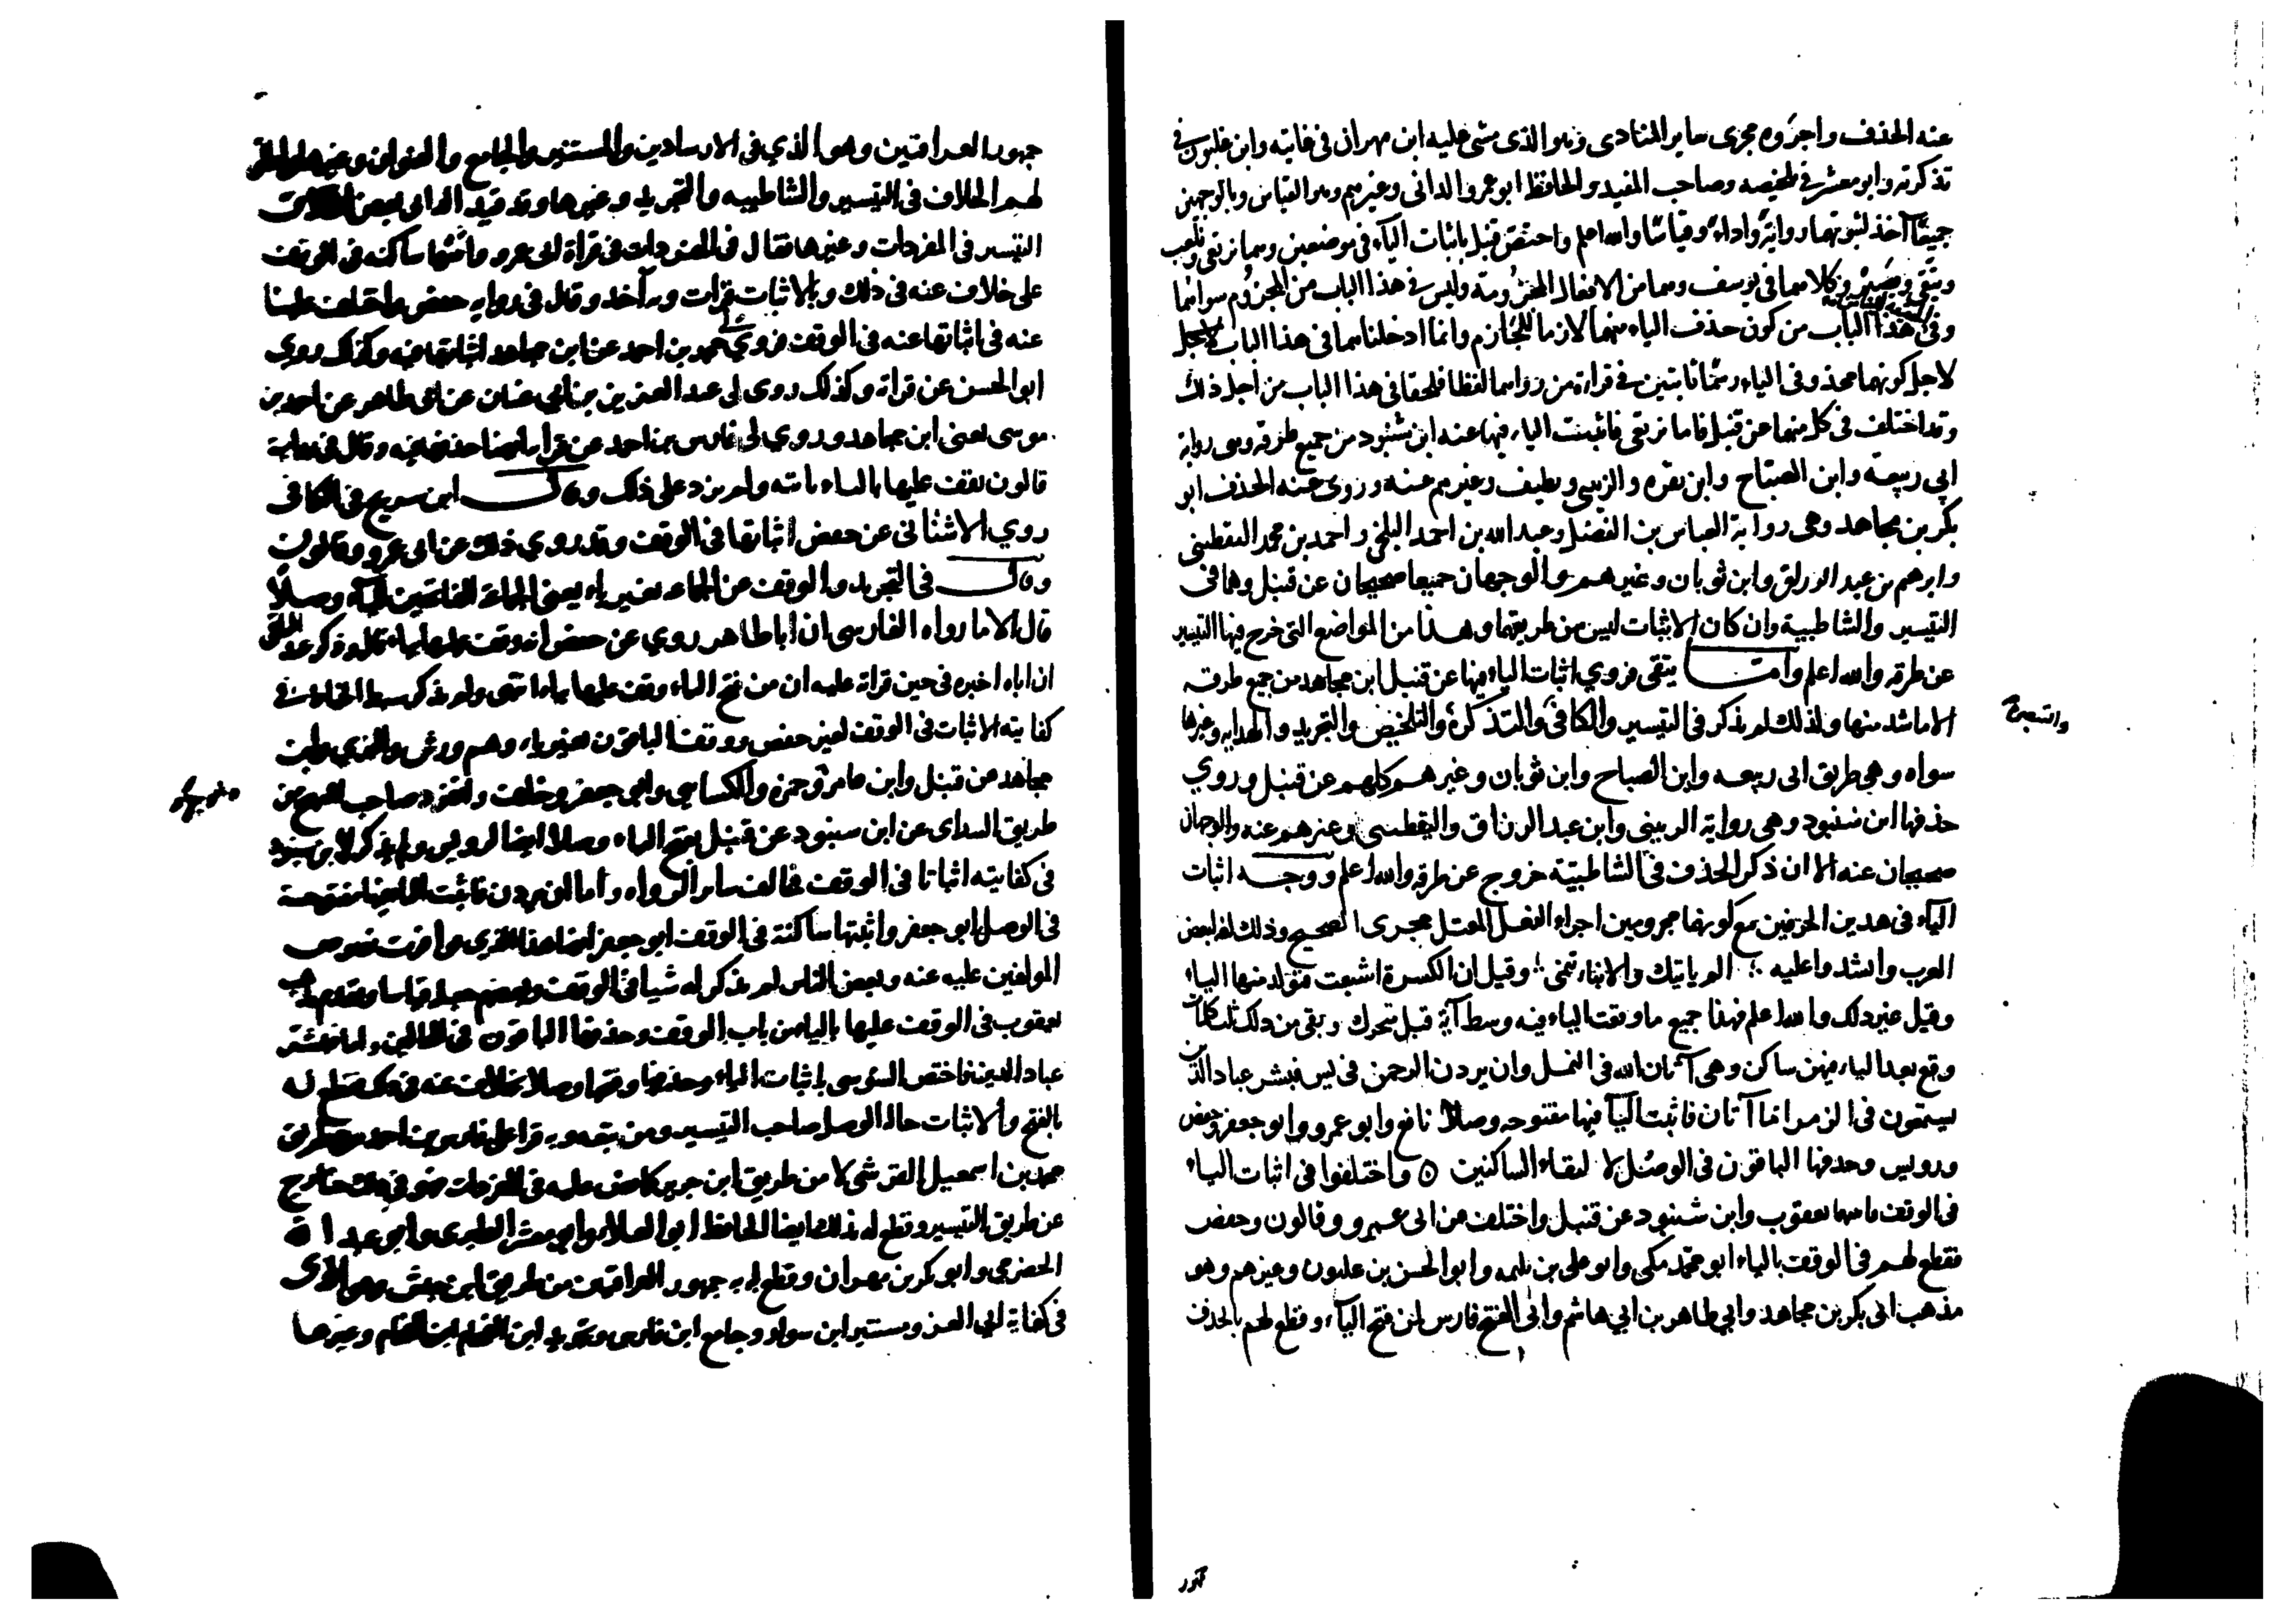 عنه الحذف واجروه مجرى ساير المنادى وهو الذى مشى عليه ابن مهران فى غايته وابن غلبون فى
تذكرته وابو معشر فى تلخيصه وصاحب المفيد والحافظ ابو عمرو الدانى وغيرهم وهو القياس وبالوجهين
جميعًا آخذ لثبوتهما رواية واداء وقياسًا والله اعلم واختص قنبل باثبات الياء فى موضعين وهما نرتعى ونلعب
ويتقى ويصبر وكلاهما فى يوسف وهما من الافعال المجزومة وليس فى هذا الباب من المجزوم سواهما
وفى هذا الباب من كون حذف الياء منهما لازما للجازم وانما ادخلناهما فى هذا الباب
لاجل كونهما محذوفى الياء رسمًا ثابتين فى قراءة من رواهما لفظا فلحقا فى هذا الباب من اجل ذلك
وقد اختلف فى كل منهما عن قنبل فاما نرتعى فاثبت الياء فيها عنه ابن شنبوذ من جميع طرقه وهى رواية
ابى ربيعة وابن الصباح وابن بقره والزينبى ونظيف وغيرهم عنه وروى عنه الحذف ابو
بكر بن مجاهد وهى رواية العباس بن الفضل وعبد الله بن احمد البلخى واحمد بن محمد اليقطينى
وابرهيم بن عبد الرزاق وابن ثوبان وغيرهم والوجهان جميعا صحيحان عن قنبل وهما فى
التيسير والشاطبية وان كان الاثبات ليس من طريقهما وهذا من المواضع التى خرج فيها التيسير
عن طرقه والله اعلم وامـــا يتقى فروي اثبات الياء فيها عن قنبل ابن مجاهد من جميع طرقه
الا ما شذ منها ولذلك لم يذكر فى التيسير والكافى والتذكرة والتلخيص والتجريد والهداية وغيرها
والتبصرة
سواه وهى طريق ابى ربيعه وابن الصباح وابن ثوبان وغيرهم كلهم عن قنبل وروي
حذفها ابن شنبوذ وهى رواية الزينبى وابن عبد الرزاق واليقطينى وغيرهم عنه والوجهان
صحيحان عنه الا ان ذكر الحذف فى الشاطبية خروج عن طرقه والله اعلم ووجـــه اثبات
الياء فى هدين الحرفين مع كونهما مجزومين اجراء الفعل المعتل مجرى الصحيح وذلك لغه لبعض
العرب وانشدوا عليه ؞ الم ياتيك والانباء تنمى ؞ وقيل ان الكسرة اشبعت فتولد منها الياء
وقيل غير دلك والله اعلم فهذا جميع ما وقعت الياء فيه وسط آية قبل متحرك وبقى من دلك ثلث كلمات
وقع بعد الياء فيهن ساكن وهى آتان الله فى النمل وان يردن الرحمن فى يس فبشر عباد الذين
يستمعون فى الزمر اما آتان فاثبت الياء فيها مفتوحه وصلًا نافع وابو عمرو وابو جعفر وحفص
ورويس وحدفها الباقون فى الوصل لالتقاء الساكنين ٥ واختلفوا فى اثبات الياء
فى الوقف فاثبتها يعقوب وابن شنبوذ عن قنبل واختلف عن ابى عمرو وقالون وحفص
فقطع لهم فى الوقف بالياء ابو محمد مكى وابو على بن بليمه وابو الحسن بن غلبون وغيرهم وهو
مذهب ابى بكر بن مجاهد وابي طاهر بن ابي هاشم وابى الفتح فارس لمن فتح الياء وقطع لهم بالحذف
جمهور
جمهور العراقيين وهو الذي فى الارشادين والمستنير والجامع والعنوان وغيرها
لهم الخلاف فى التيسير والشاطبيه والتجريد وغيرها وقد قيد الدانى بعض
التيسير فى المفردات وغيرها فقال فى المفردات فى قراة ابى عمرو واثبتها ساكنه فى الوقف
على خلاف عنه فى ذلك وبالاثبات قرات وبه آخذ وقال فى روايه حفص واختلف علينا
عنه فى اثباتها عنه فى الوقف فروي لى محمد بن احمد عن ابن مجاهد اثباتها فيه وكذلك روي
ابو الحسن عن قراته وكذلك روى لى عبد العزيز بن ابى غسان عن ابى طاهر عن احمد بن
موسى يعنى ابن مجاهد وروي لى فارس بن احمد عن قراته ايضا حذفها فيه وقال فى رواية
قالون يقف عليها بالياء ثابته ولم يزد على ذلك وقالـــ ابن سريج فى الكافى
روي الاشنانى عن حفص اثباتها فى الوقف وقد روي ذلك عن ابى عمرو وقالون
وقالـــ فى التجريد والوقف عن الجماعه بغير ياء يعنى الجماعة الفاتحين للياء وصلًا
قال الا ما رواه الفارسى ان ابا طاهر روي عن حفص انه وقف عليها بياء قال وذكر عبد الباقى
ان اباه اخبره فى حين قراته عليه ان من فتح الياء وقف عليها بياء انتهى ولم يذكر سبط الخياط فى
كفايته الاثبات فى الوقف لغير حفص ووقف الباقون بغير ياء وهم ورش والبزي وابن
مجاهد عن قنبل وابن عامر وحمزه والكسايى وابى جعفر وخلف وانفرد صاحب المبهج من
طريق الشذاى عن ابن سنبود عن قنبل بفتح الياء وصلا ايضا لرويس ولم يذكر لابن شنبوذ
فى كفايته اثباتا فى الوقف فخالف ساير الرواه واما ان يردن فاثبت الياء فيها مفتوحة
فى الوصل ابو جعفر واثبتها ساكنة فى الوقف ابو جعفر ايضا هذا الذي توافرت نصوص
المولفين عليه عنه وبعض الناس لم يذكر له شيا فى الوقف وبعضهم جعله قياسا وتقدم مذهب
يعقوب فى الوقف عليها بالياء من باب الوقف وحذفها الباقون فى الحالين واما فبشر
عباد الذين فاختص السوسى باثبات الياء وحذفها وقفا وصلا بخلاف عنه فى ذلك فقطع له
بالفتح والاثبات حالة الوصل صاحب التيسير ومن تبعه وبه قرا على فارس بن احمد من طريق
محمد بن اسمعيل القرشى لا من طريق ابن جرير كما نص عليه فى المفردات فهو فى ذلك خارج
عن طريق التيسير وقطع له بذلك ايضا الحافظ ابو العلاء وابو معشر الطبرى وابو عبد الله
الحضرمى وابو بكر بن مهران وقطع له به جمهور العراقيين من طريق ابن حبش وهو الذى
فى كفاية ابى العز ومستنير ابن سوار وجامع ابن فارس وتجريد ابن الفحام وغيرها